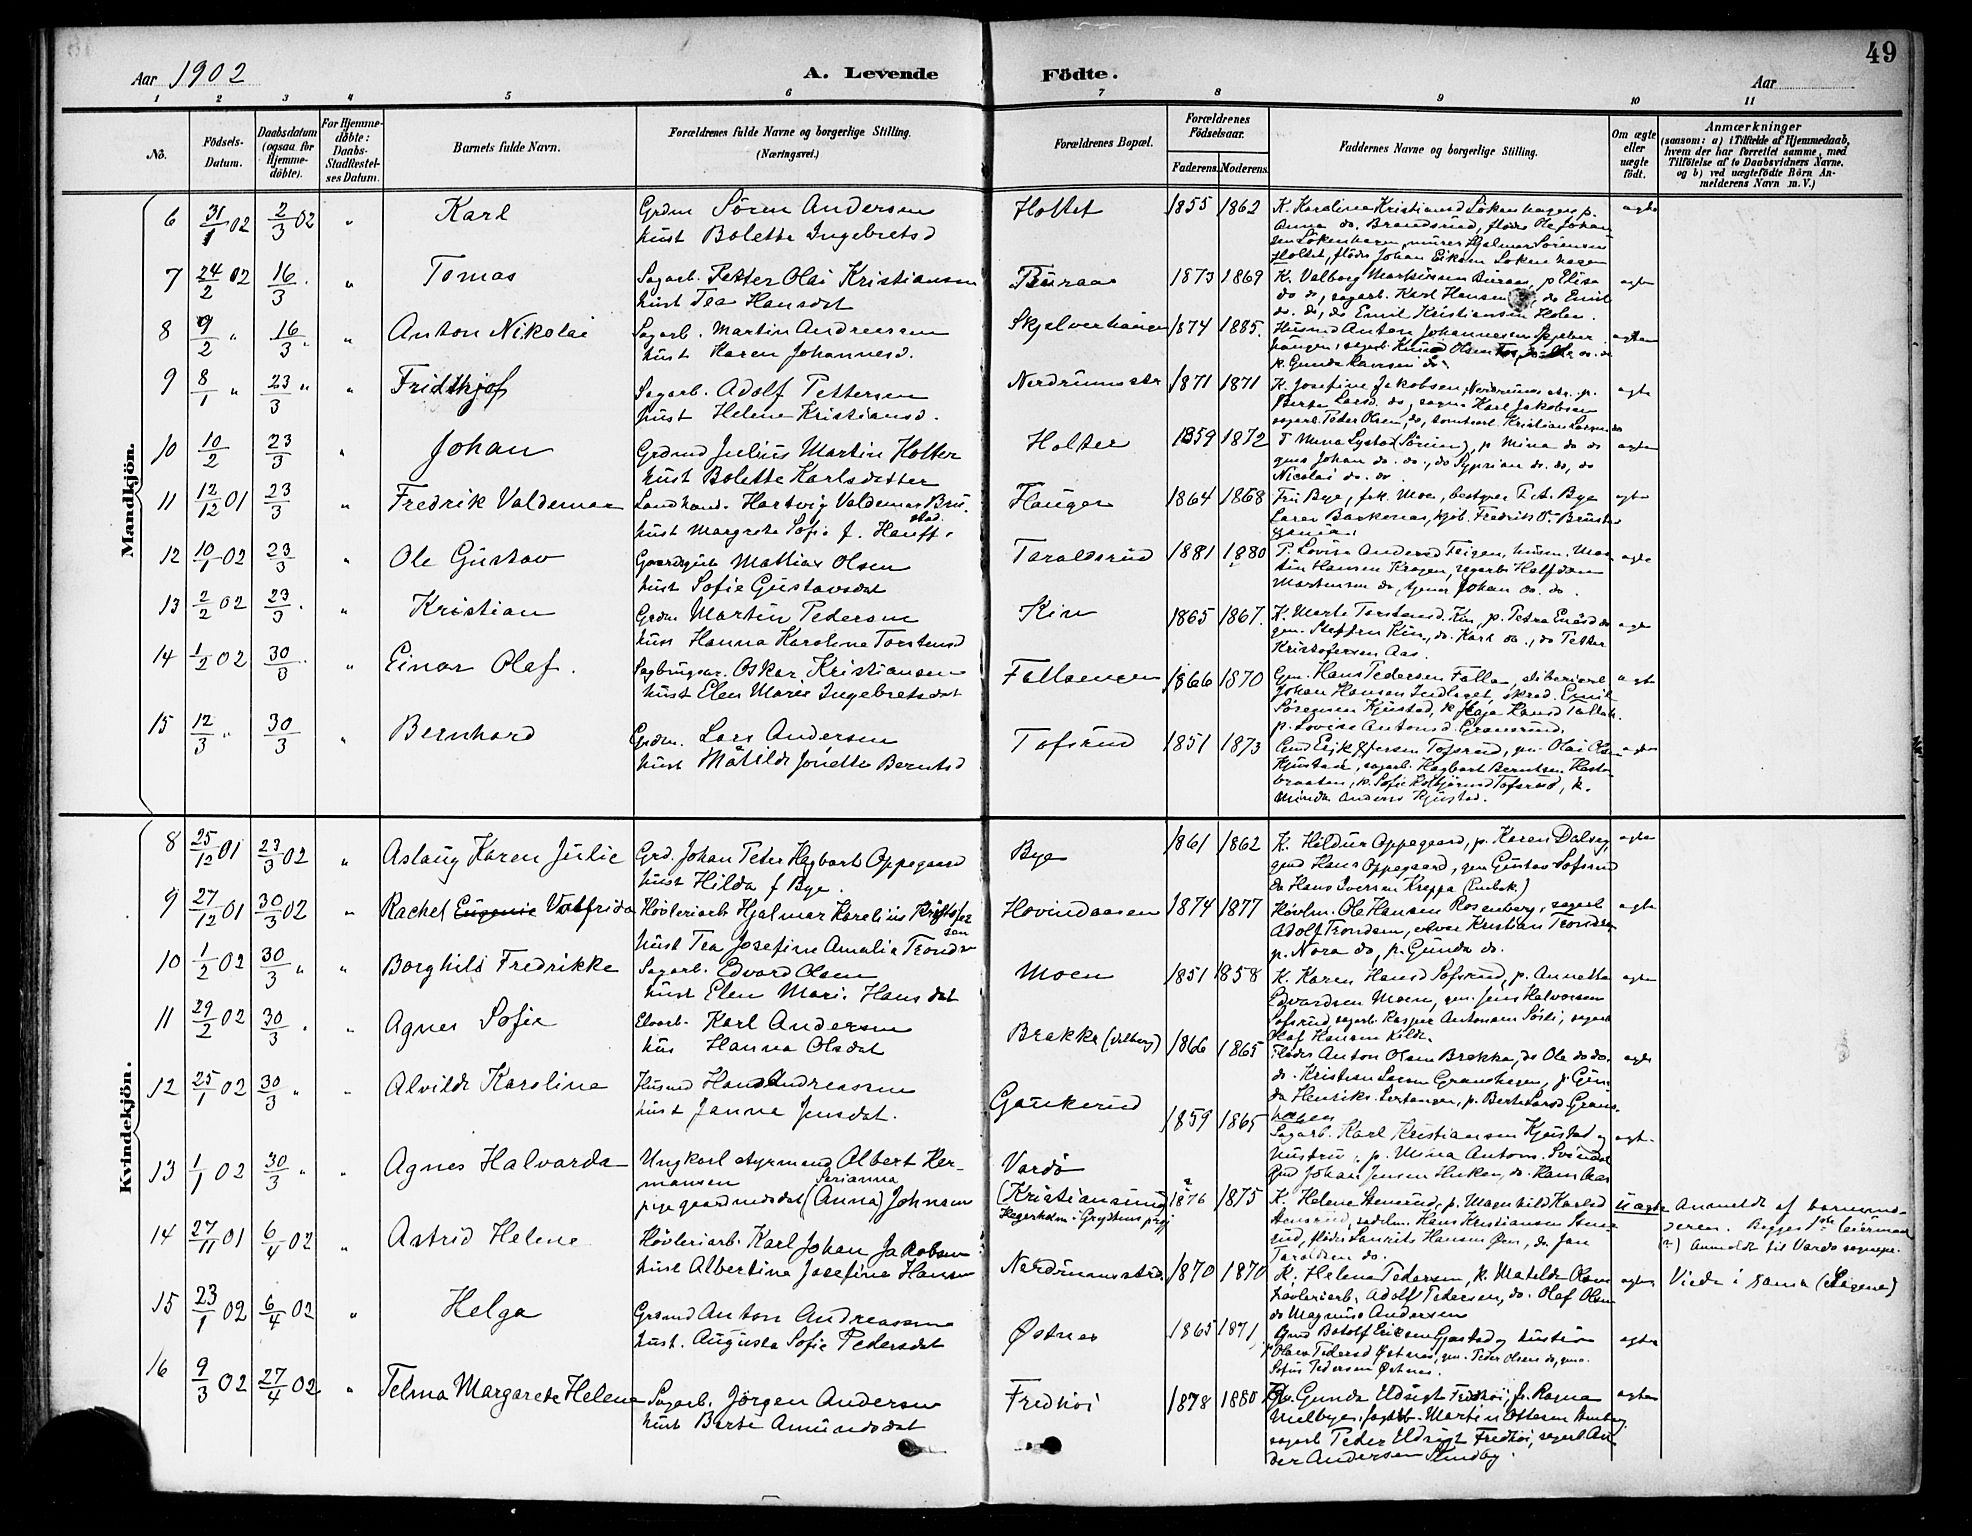 49
Aar 1902
A. Levende Födte.
Aar
1 2 3 4 5 6 7 8 9 10 11
No.
Födsels-Datum.
Daabsdatum (ogsaa for Hjemmedöbte).
For Hjemmedöbte: Daabs-Stadfæstelses Datum.
Barnets fulde Navn.
Forældrenes fulde Navne og borgerlige Stilling.
(Næringsvei.)
Forældrenes Bopæl.
Forældrenes Födselsaar.
Faderens. Moderens.
Faddernes Navne og borgerlige Stilling.
Om ægte eller uægte födt.
Anmærkninger
(saasom: a) i Tilfælde af Hjemmedaab, hvem der har forrettet samme, med Tilföielse af to Daabsvidners Navne, og b) ved uægtefödte Börn Anmelderens Navn m. V.)
Mandkjön.
6 31/1 02 2/3 02 " Karl
Grdm Sören Andersen
hust Bolette Ingebretsd
Holtet 1855 1862
K. Karoline Kristiansd Lökenhagen p.
Anna do. Brandsrud, flöder Ole Johan
sen Lökenhagen, murer Hjalmar Sörensen
Holtet, flöder Johan Lökenhagen
ægte
7 24/2 02 16/3 " Tomas
Sagarb. Petter Olai Kristiansen
hust Tea Hansdat
Buraas 1873 1869
K. Valborg Buraas, p Elise
do do, sagarb. Karl Hansen do Emil
do. do, do Emil Kristiansen Holen.
ægte
8 9/2 " 16/3 " Anton Nikolai
Sagarb. Martin Andreasen
hust Karen Johannesd.
Skjelverhaugen 1874 1885.
Husmd Anton Johannesen
haugen, sagarb. Knud Olsen
k. Gunda do
ægte
9 8/1 " 23/3 " " Fridthjof
Sagarb. Adolf Pettersen
hust Helene Kristiansd.
Nerdrumsstr 1871 1871
K. Josefine Jakobsen, Nerdrums str. p.
Berte Larsd. do, sagm Karl Jakobsen
sagarb. Peder Olsen, do, tomtearb. Kristian Larsen do
ægte
10 10/2 23/3 " Johan
Grdmd Julius Martin Holter
hust Bolette Karlsdatter
Holter 1859 1872
F Mina Lystad (Sörum), p Mina do do
gms Johan do. do., do Syprian do. do, do
Nicolai do. do.
ægte
11 12/12 01 23/3 " Fredrik Valdemar
Landhand. Hartvig Valdemar Bru-
stad.
hust Margrete Sofie f. Hauff.
Hauger 1864 1868
Fru Bye, frk Moe, bestyrer Bye
Fredrik V. Brustad
ægte
12 10/1 02 23/3 " Ole Gustav
Gaardsgut Mathias Olsen
hust Sofie Gustavsdat
Taraldsrud 1881 1880
P. Lovise Andersd Teigen, husm. Mar
tin Hansen Kragen, sagarb Halfdan
Martinsen do, tjener Johan do. do.
ægte
13 2/2 02 23/3 " Kristian
Grdm. Martin Pedersen
hust Hanna Karoline Torstensd
Kin 1865 1867.
K. Marte Torstensd. Kin, p. Petra do
gm. Steffen Kin, do. Karl do., do Petter
Kristofersen Aas.
ægte
14 1/2 02 30/3 " Einar Olaf.
Sagbrugsar. Oskar Kristiansen
hust Elen Marie Ingebretsdat
Fallsengen 1866 1870
Gm. Hans Pedersen Falla, sliberiarb
Johan Hansen Indlaget, skræd. Emil
Sörensen Kjustad, k
p. Lovise Antonsd.
ægt
15 12/3 " 30/3 " Bernhard
Grdm. Lars Andersen
hust Matilde Jonette Berntsd
Tofsrud 1851 1873
Gmd Eriksen Tofsrud, gm Olai Olsen
Kjustad, sagarb. Hagbart Berntsen
braaten, k. Sofie Tofsrud, k.
Minda Anders Kjustad.
ægte
Kvindekjön.
8 25/12 01 23/3 02 " Aslaug Karen Julie
Grd. Johan Peter Hagbart Oppegaard
hust Hilda f Bye.
Bye 1861 1862
K. Hildur Oppegaard, p. Karen Dalsey,
gmd Hans Oppegaard, gm Gustav Sofsrud
do Hans Iversen Kreppa (Enbak.)
ægte
9 27/12 01 30/3 02 " Rachel Eugenie Valfrida
Hövleriarb Hjalmar Karelius Kristofer
sen
hust Tea Josefine Amalia Trondsen
Hovindaasen 1874 1877
Hövlm. Ole Hansen Rosenberg, sagarb
Adolf Trondsen, Kristian Trondsen
p. Nora do, p. Gunda do.
ægte
10 1/2 02 30/3 " " Borghild Fredrikke
Sagarb. Edvard Olsen
hust Elen Mari. Hansdat
Moen 1851 1858
K. Karen Hansd Sofsrud, p. Annette
Edvardsen Moen, gm. Jens Halvorsen
Sofsrud, sagarb. Kasper Antonsen Sösli, sagarb
Olaf Hansen
ægte
11 29/2 02 30/3 " " Agnes Sofie
Elvarb. Karl Andersen
hus Hanna Olsdat
Brække 1866 1865
Flöder Anton Olsen Brekke, do Ole do do.
do. Kristian Larsen Granshagen, p. Gun
da Henriks. p. Berte Larsd. Grans
hagen
ægte
12 25/1 02 30/3 " " Alvilde Karoline
Husmd Hans Andreassen
hust Janna Jensdat.
Gaukerud 1859 1865
Sagarb. Karl Kristiansen Kjustad og
hustru, p. Mina Antons. Svendat
Gmd Johan Jensen do. Hans Aas
ægt.
13 1/1 02 30/3 " " Agnes Halvarda
Ungkarl styrmand Albert Her-
mansen
Serianna
pige gaardmdsdat (Anna) Johnsen
Vardö
(Kristianssund)
Hegerholm i Gryttens prgj
1876 1875
K. Helene Stensrud, p. Magnhild Karlsd
Stensrud, Hans Kristiansen Stens
rud, flöder Laurits Hansen Örn, do. Jan
Taraldsen do.
uægte
Anmeldt af barnemo-
deren. Begges 1ste leiermaal
(?) Anmeldt til Vardö sognepr.
14 27/11 01 6/4 02 " Astrid Helene
Hövleriarb. Karl Johan Jakobsen
hust Albertine Josefine Hansen
Nerdrumsstr. 1870 1870
K. Helene Pedersen, k. Matilde Olsen
hövleriarb. Adolf Petersen, do. Olaf Olsen
do Magnus Andersen
ægte
Viede i sama (Sagene)
15 23/1 02 6/4 02 " Helga
Grdmd Anton Andreassen
hust. Augusta Sofie Pedersdat
Østnes 1865 1871
Gmd Botolf Eriksen Gjestad og hustru
p Olava Pedersd Østnes, gm. Peder Olsen do, gmd.
Sofus Pedersen Østnes.
ægte
16 9/3 02 27/4 02 " Telma Margarete Helene
Sagarb. Jörgen Andersen
hust Berte Amundsdat
Fredhöi 1878 1880
Gunda Eldrigt Fredhöi, fr. Ragna
Melbye, sagarb. Martin Ottesen
sagarb Peder Eldrigt Fredhöi, sagarb An
der Andersen Sundby.
ægte